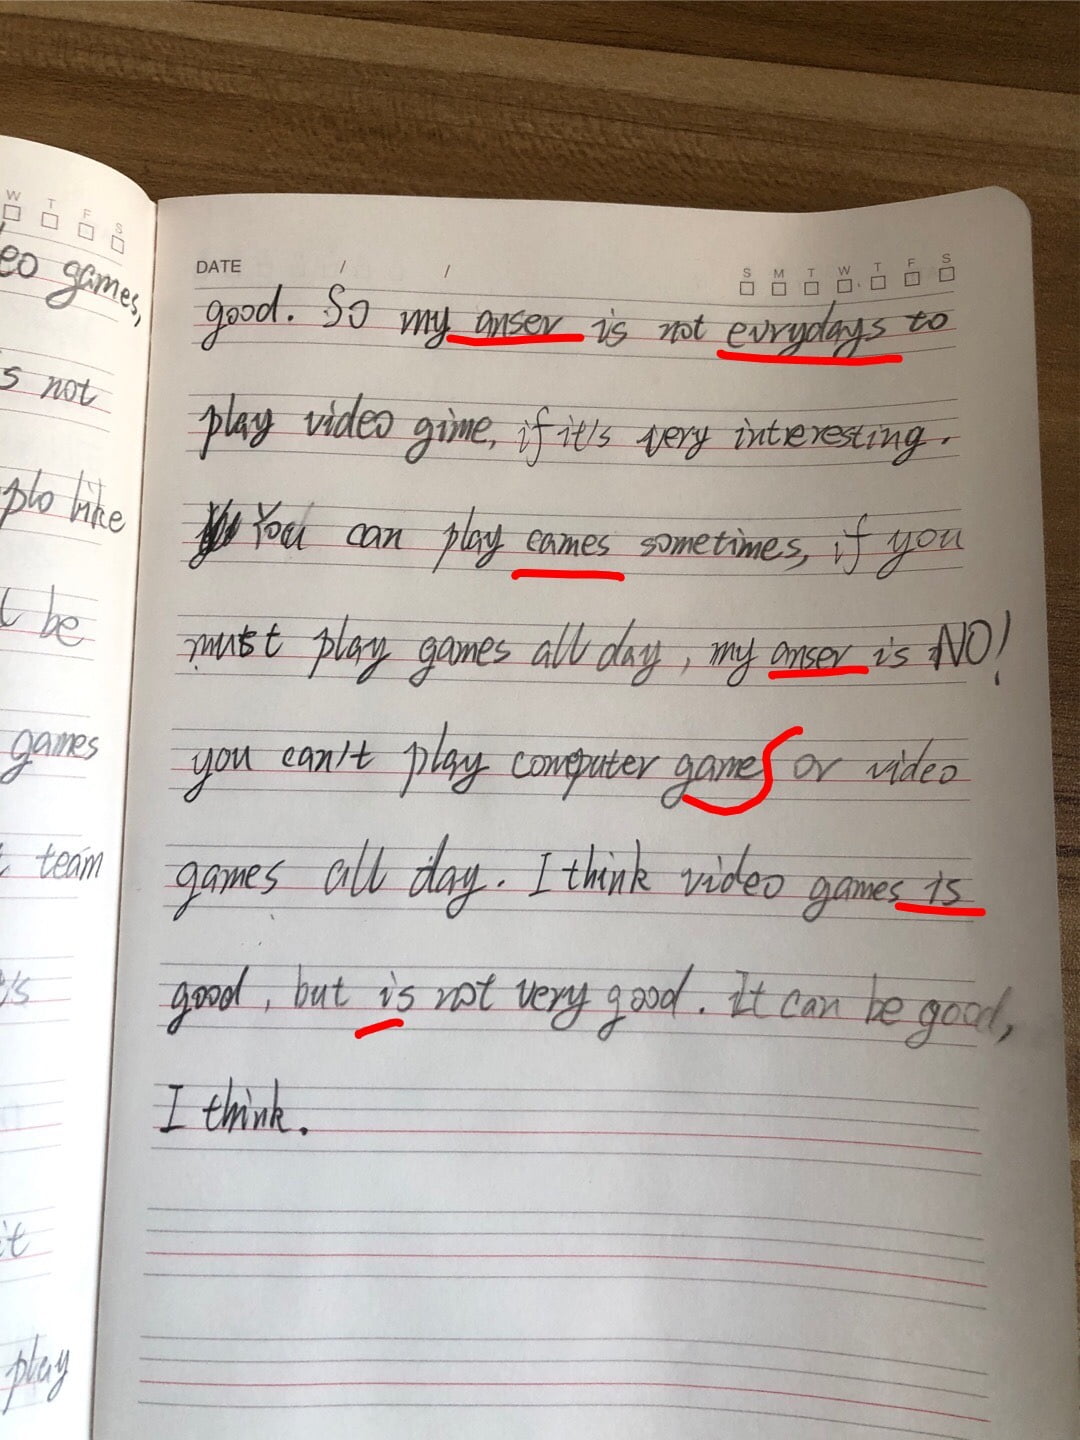 W T F S
eo games,
s not
plo like
t be
games
t team
t's
it
play
DATE / /
S M T W T F S
good. So my anser is not evrydays to
play video gime, if it's very interesting.
You can play eames sometimes, if you
must play games all day, my anser is NO!
you can't play computer games or video
games all day. I think video games is
good, but is not very good. It can be good,
I think.